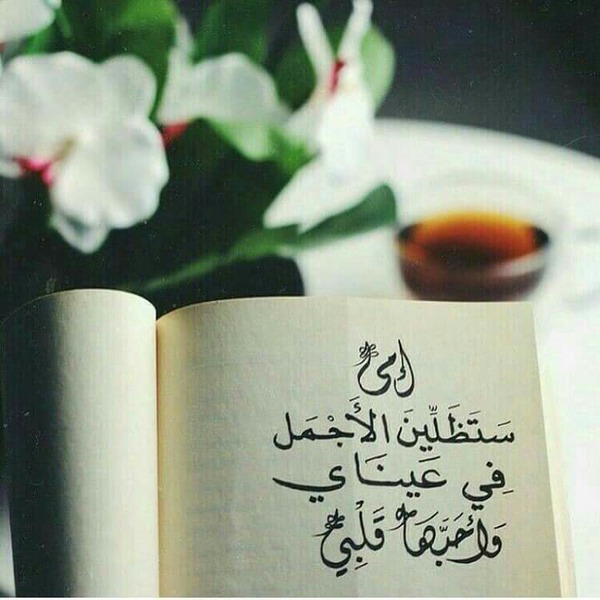 إمي
سَتَظَلِّينَ الأَجْمَل
فِي عَينَاي
وَأحَبَّهَا قَلْبِي